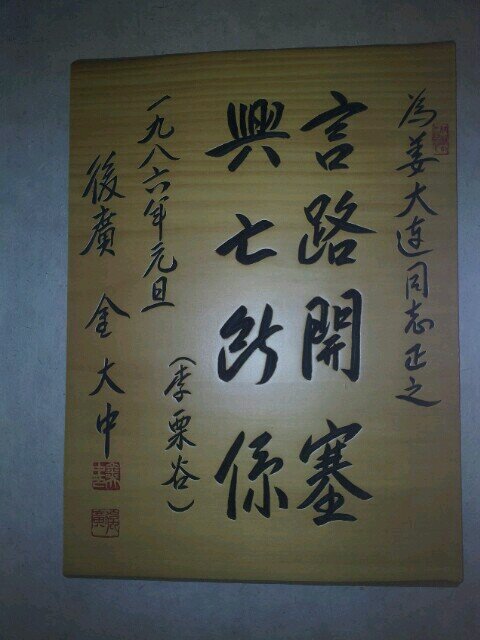 為姜大連同志正之
言路開塞
興亡所係
(李栗谷)
一九八六年元旦
後廣 金大中